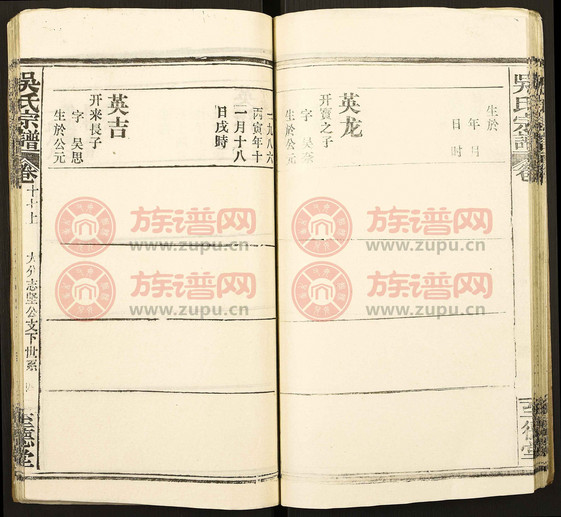 吴氏宗譜
卷
至德堂
生於
年 月
日 時
英龙
开寶之子
字 吴
一九八六
丙寅年十
一月十八
日戌時
英吉
开来長子
字 吴思
生於公元
吴氏宗譜
卷
志堅公支下世系
至德堂
族谱网
www.zupu.cn
族谱网
www.zupu.cn
族谱网
www.zupu.cn
族谱网
www.zupu.cn